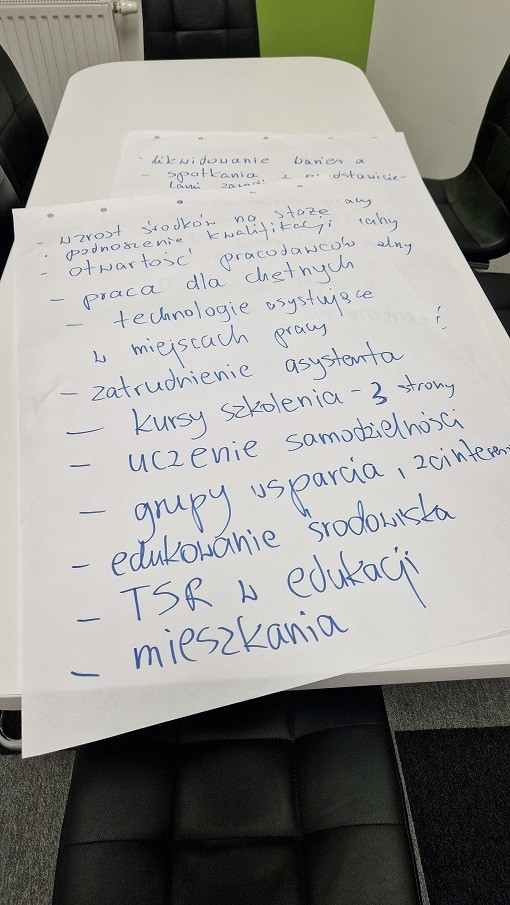 - likwidowanie barier a
- spotkania z
- wzrost środków na staże
- podnoszenie kwalifikacji
- otwartość pracodawców
- praca dla chętnych
- technologie asystujące
w miejscach pracy
- zatrudnienie asystenta
- kursy szkolenia - 3 strony
- uczenie samodzielności
- grupy wsparcia i
- edukowanie środowiska
- TSR w edukacji
- mieszkania